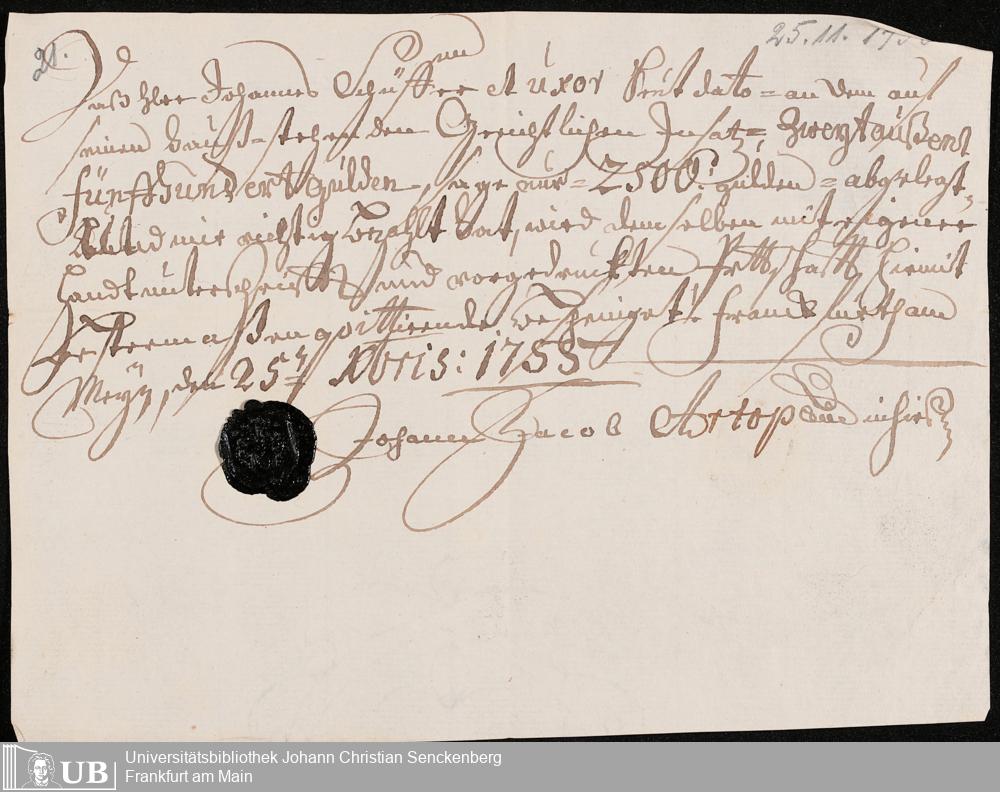 21.
25. 11. 17
Daß Herr Johannes Schüffer et uxor heut dato = an dem auf
seinem hauß = stehenden Gerichtlichen Insatz = Zweytaußend
fünffhundert gülden, sage nur = 2500. gülden = abgelegt,
und mir richtig bezahlt hat, wird demselben mit eigener
Handtunterschrifft und vorgedruckten Pettschafft hiemit
bestermaßen quittirende bescheiniget! Franckfurth am
Meyn, den 25. Xbris: 1755
Johann Jacob Artop
Universitätsbibliothek Johann Christian Senckenberg
UB Frankfurt am Main